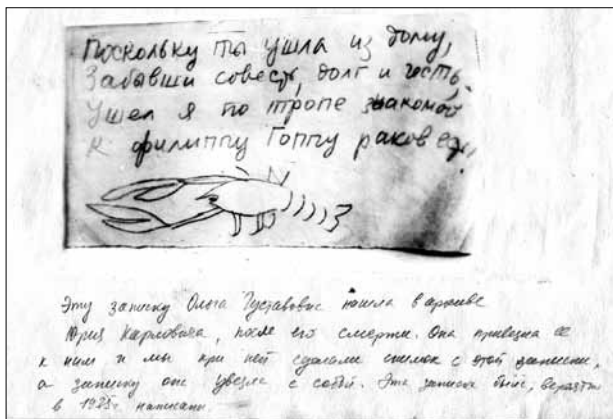 Поскольку ты ушла из дому,
Забывши совесть, долг и честь,
Ушел я по тропе знакомой
К Филиппу Гоппу раков есть.
Эту записку Ольга Густавовна нашла в архиве
Юрия Карловича, после его смерти. Она привезла ее
к ним и мы при ней сделали снимок с этой записки,
а записку она увезла с собой. Эта записка была,
в 1925г. написана.